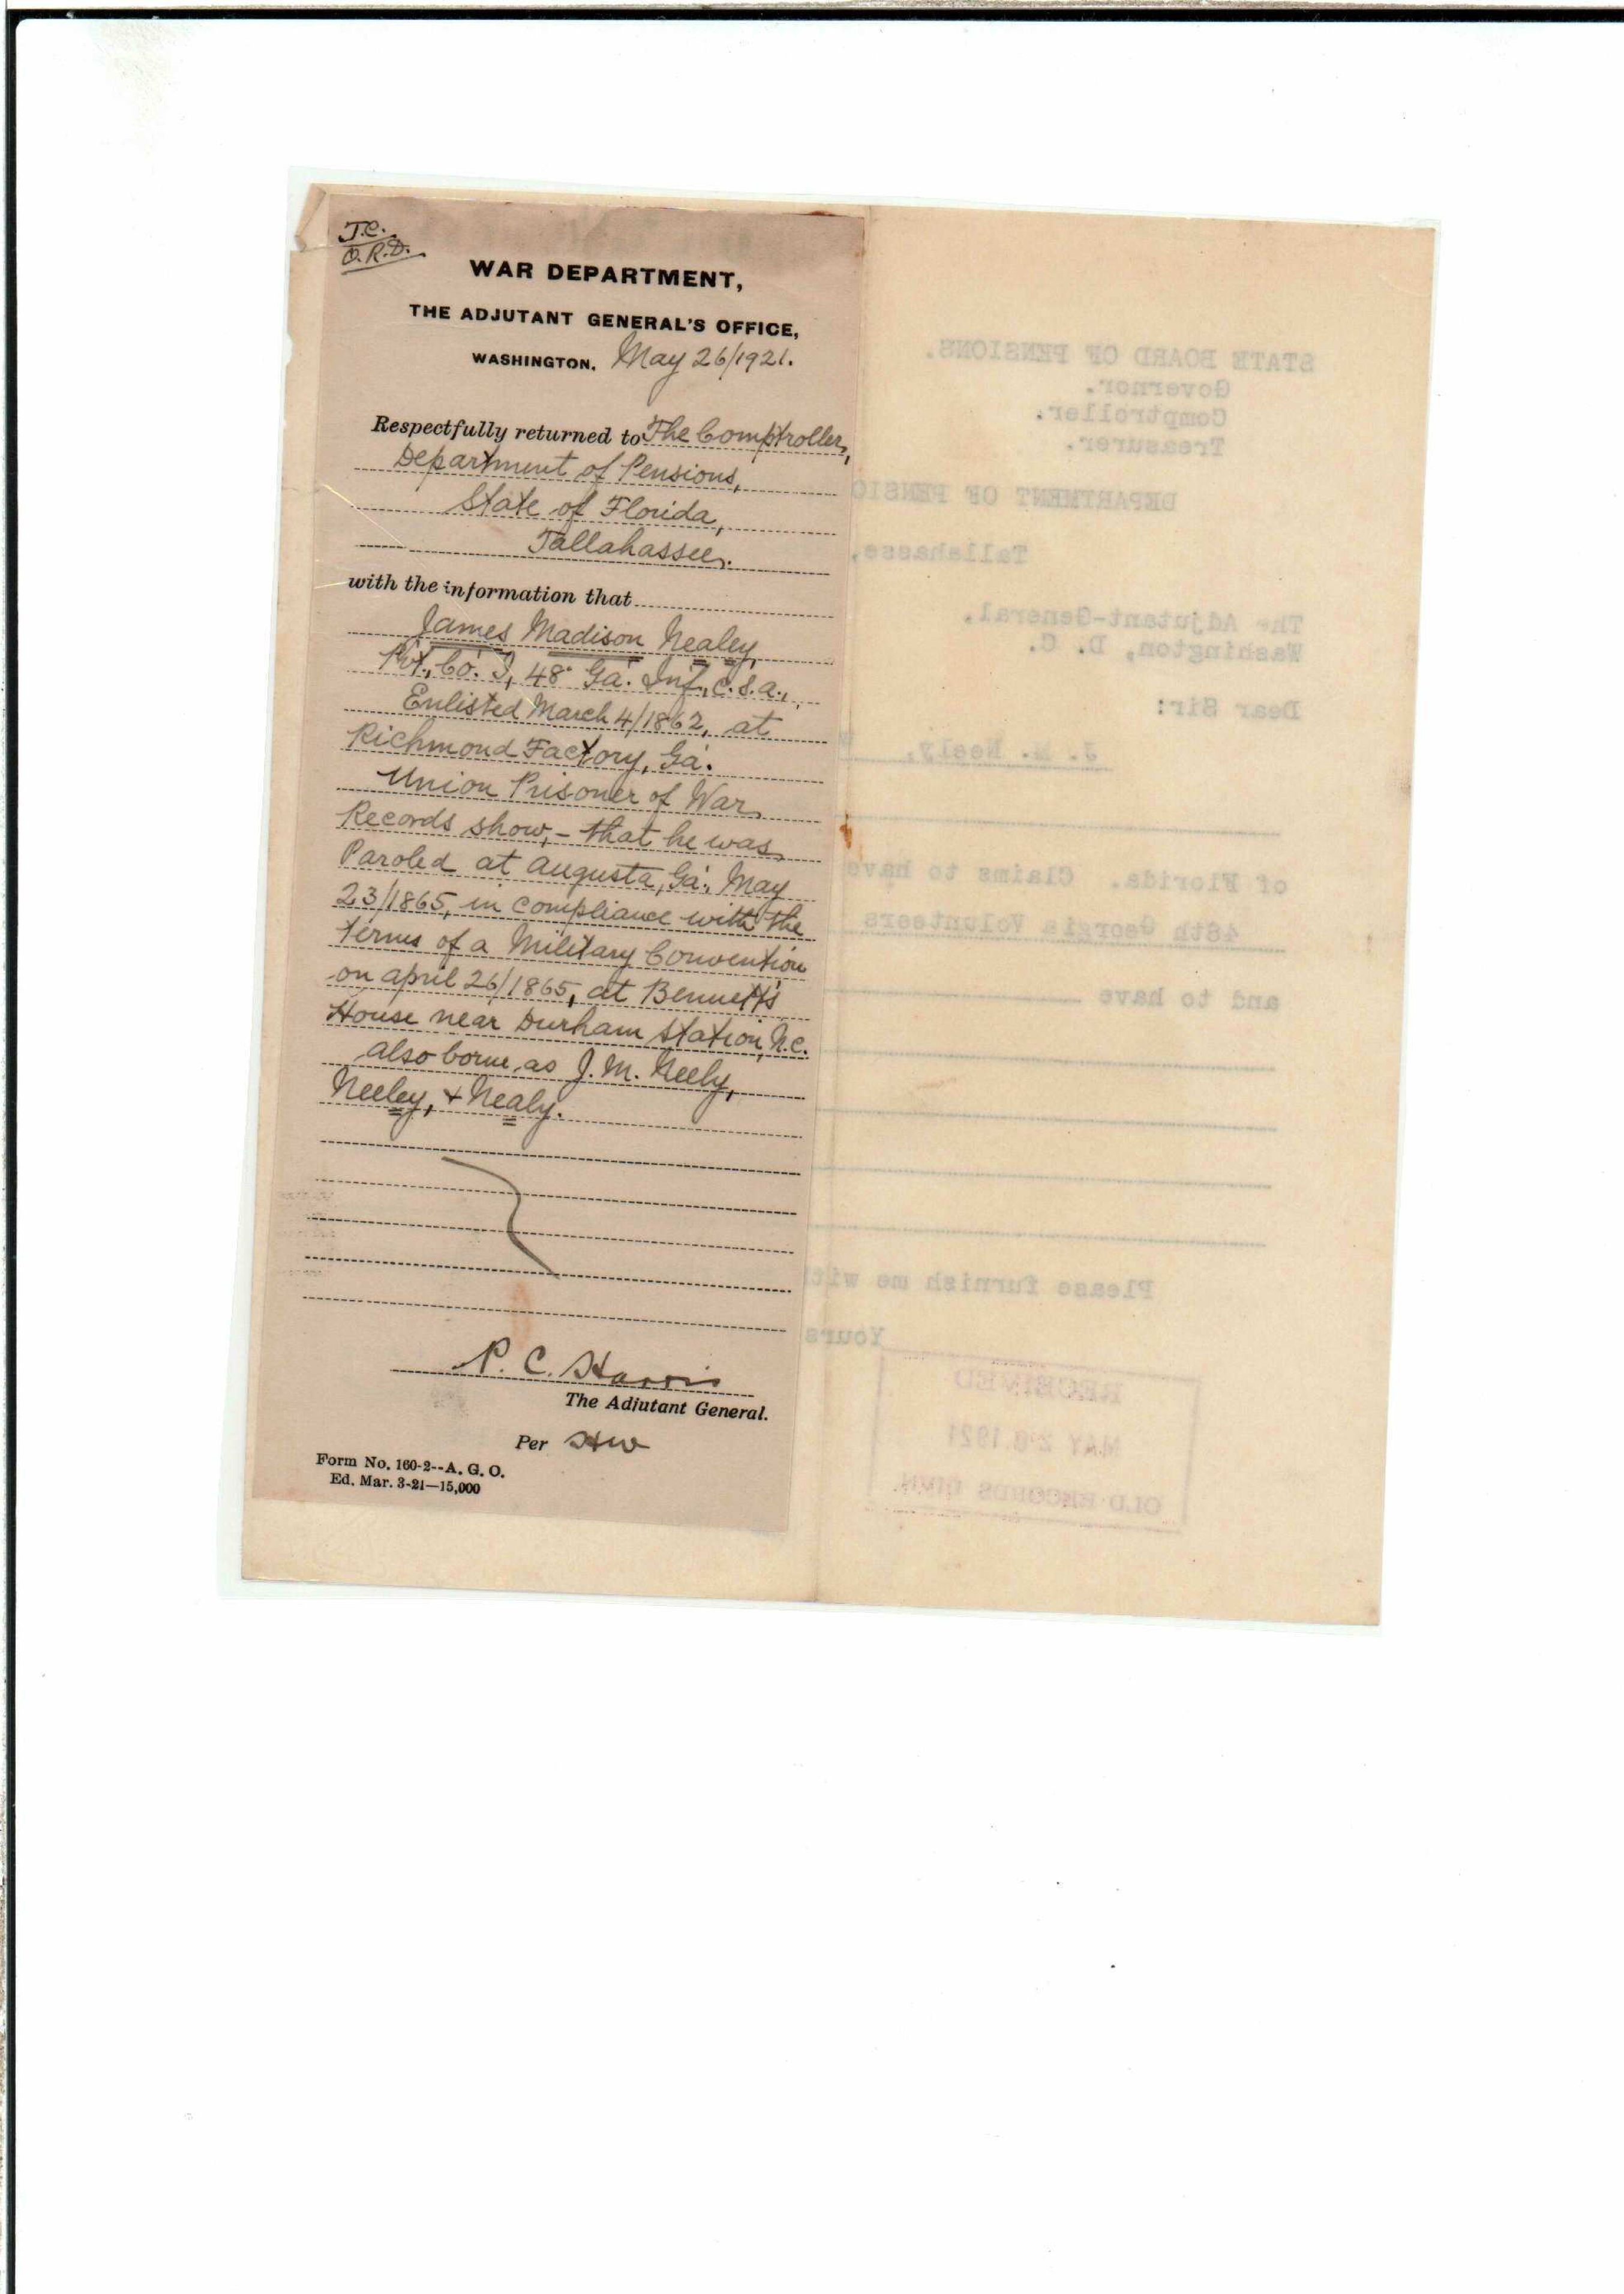 J.C.
O.R.D.
WAR DEPARTMENT,
THE ADJUTANT GENERAL'S OFFICE,
WASHINGTON, May 26/1921.
Respectfully returned to The Comptroller,
Department of Pensions,
State of Florida,
Tallahassee.
with the information that
James Madison Nealey,
Pvt., Co. I, 48" Ga. Inf., C.S.A.,
Enlisted March 4/1862, at
Richmond Factory, Ga.
Union Prisoner of War
Records show,- that he was
Paroled at Augusta, Ga., May
23/1865, in compliance with the
terms of a Military Convention
on April 26/1865, at Bennett's
House near Durham Station, N.C.
also borne as J. M. Neely,
Neeley, & Nealy.
P. C. Harris
The Adjutant General.
Per HW
Form No. 160-2--A. G. O.
Ed. Mar. 3-21—15,000
STATE BOARD OF PENSIONS.
Governor.
Comptroller.
Treasurer.
DEPARTMENT OF PENSIO
Tallahasse,
The Adjutant-General,
Washington, D. C.
Dear Sir:
J. M. Neely,
of Florida. Claims to have
48th Georgia Volunteers
and to have
Please furnish me with
Yours
RECEIVED
MAY 26 1921
OLD RECORDS DIVN.